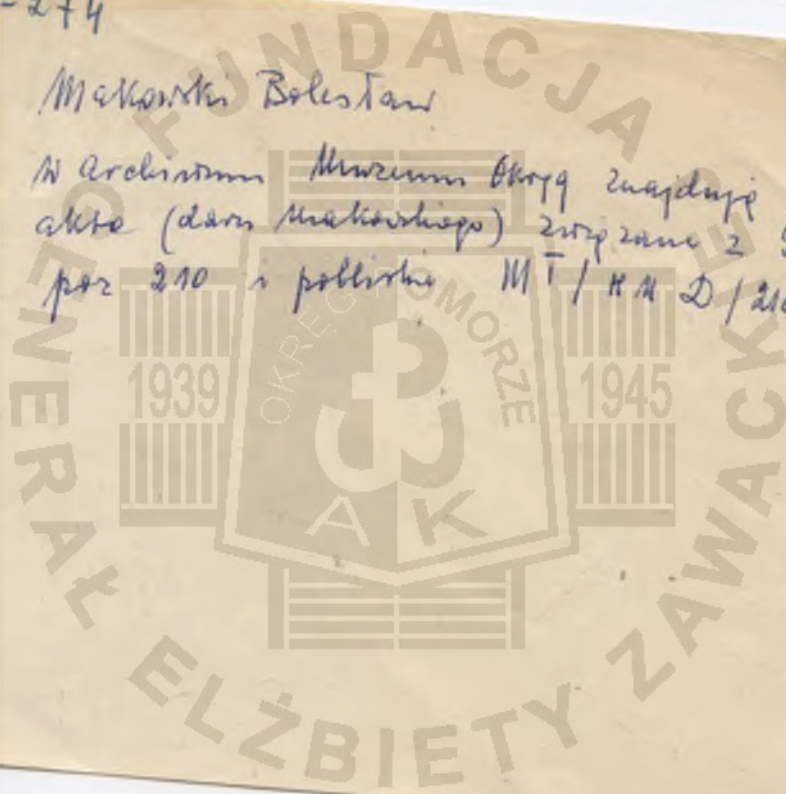 -274
Makowski Bolesław
W archiwum Muzeum Okręg znajdują
akta (daru Makowskiego) związane z
poz 210 i pobliskie M T / K M D / 210
FUNDACJA GENERAŁ ELŻBIETY ZAWACKIEJ
OKRĘG POMORZE
1939
1945
A K